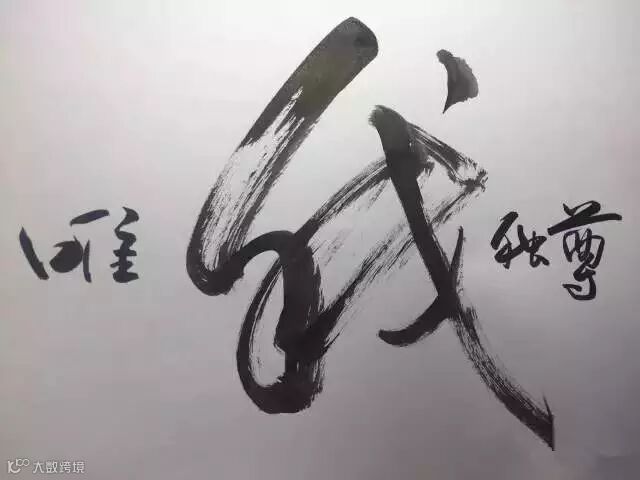 唯我独尊
大数跨境